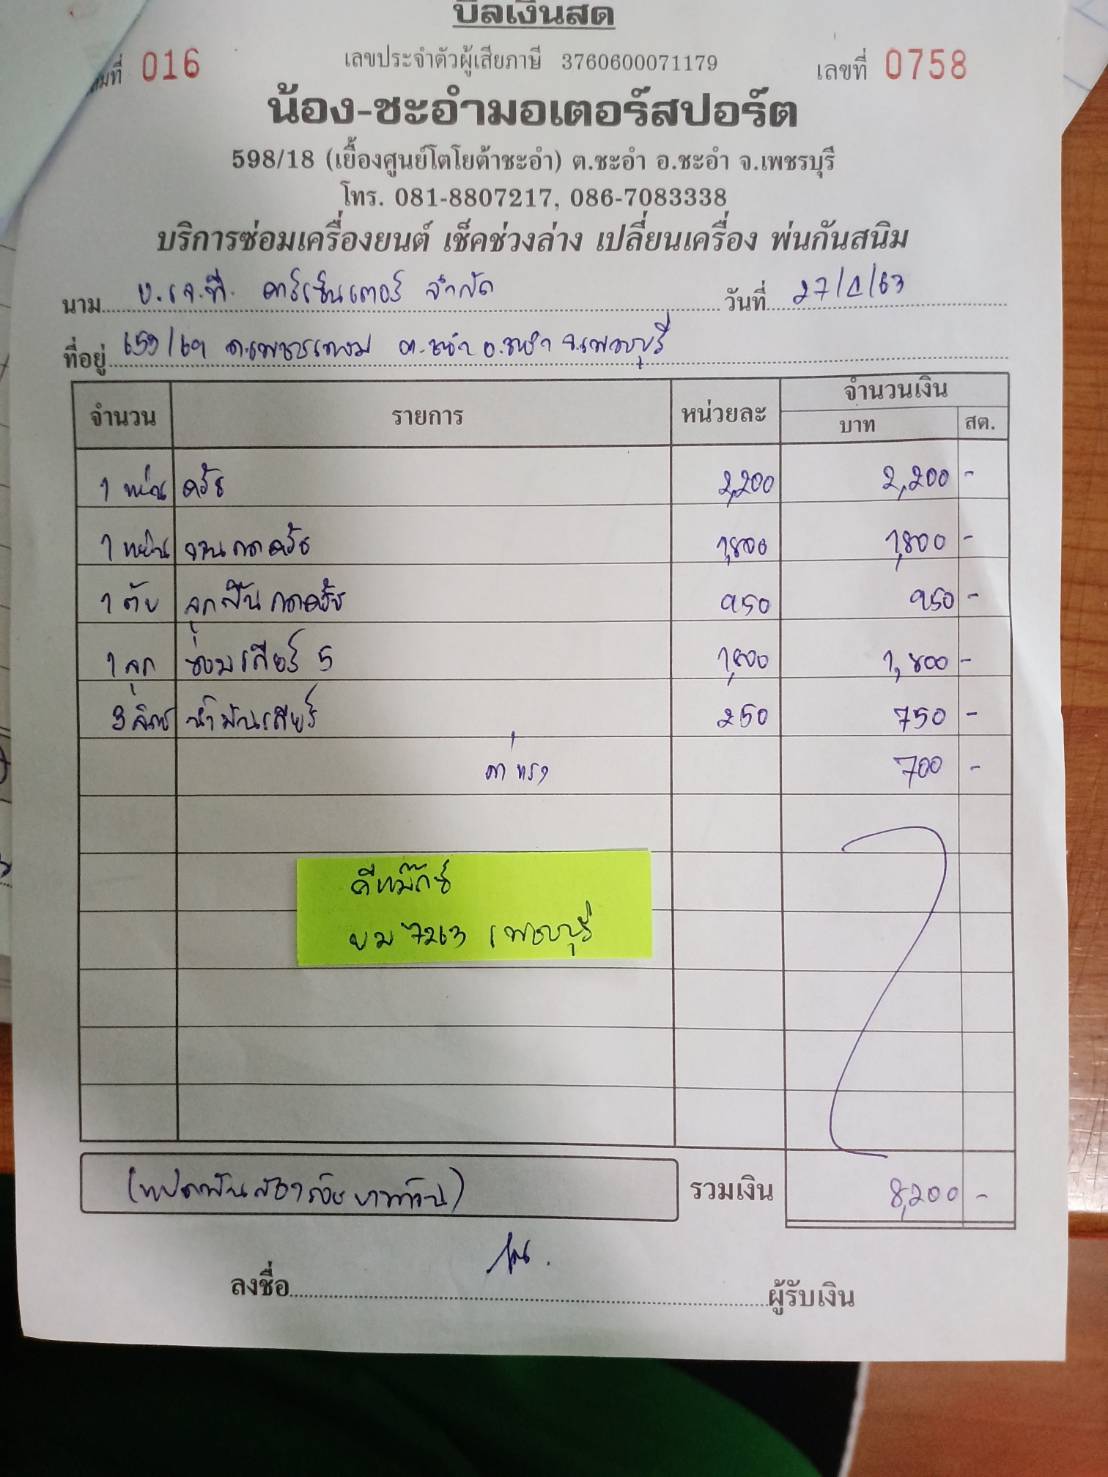 บิลเงินสด
เล่มที่ 016
เลขประจำตัวผู้เสียภาษี 3760600071179
เลขที่ 0758
น้อง-ชะอำมอเตอร์สปอร์ต
598/18 (เยื้องศูนย์โตโยต้าชะอำ) ต.ชะอำ อ.ชะอำ จ.เพชรบุรี
โทร. 081-8807217, 086-7083338
บริการซ่อมเครื่องยนต์ เช็คช่วงล่าง เปลี่ยนเครื่อง พ่นกันสนิม
นาม บ.เจ.ที. คาร์เซ็นเตอร์ จำกัด วันที่ 27/1/63
ที่อยู่ 659/69 ถ.เพชรเกษม ต.ชะอำ อ.ชะอำ จ.เพชรบุรี
จำนวน รายการ หน่วยละ จำนวนเงิน
บาท สต.
1 แผ่น ครัช 2,200 2,200 -
1 แผ่น จานกดครัช 1,800 1,800 -
1 ตับ ลูกปืนกดครัช 950 950 -
1 ลูก ซ่อมเกียร์ 5 1,800 1,800 -
3 ลิตร น้ำมันเกียร์ 250 750 -
ค่าแรง 700 -
ดีแม๊กซ์
บม 7263 เพชรบุรี
(แปดพันสองร้อยบาทถ้วน) รวมเงิน 8,200 -
ลงชื่อ ผู้รับเงิน